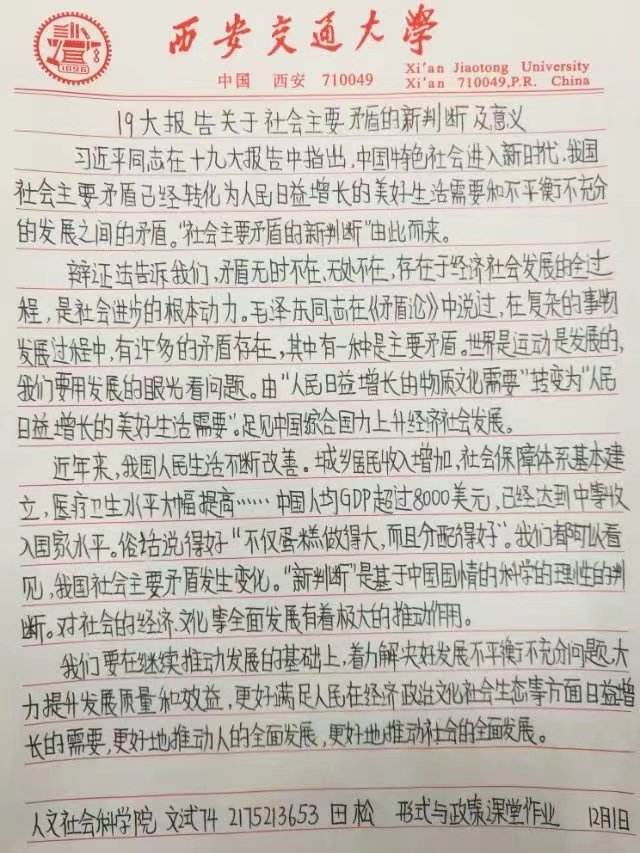 1896
西安交通大学
中国 西安 710049
Xi'an Jiaotong University
Xi'an 710049,P.R. China
19大报告关于社会主要矛盾的新判断及意义
习近平同志在十九大报告中指出,中国特色社会进入新时代,我国
社会主要矛盾已经转化为人民日益增长的美好生活需要和不平衡不充分
的发展之间的矛盾。“社会主要矛盾的新判断”由此而来。
辩证法告诉我们,矛盾无时不在,无处不在,存在于经济社会发展的全过
程,是社会进步的根本动力。毛泽东同志在《矛盾论》中说过,在复杂的事物
发展过程中,有许多的矛盾存在,其中有一种是主要矛盾。世界是运动是发展的,
我们要用发展的眼光看问题。由“人民日益增长的物质文化需要”转变为“人民
日益增长的美好生活需要”。足见中国综合国力上升经济社会发展。
近年来,我国人民生活不断改善。城乡居民收入增加,社会保障体系基本建
立,医疗卫生水平大幅提高……中国人均GDP超过8000美元,已经达到中等收
入国家水平。俗话说得好“不仅蛋糕做得大,而且分配得好”。我们都可以看
见,我国社会主要矛盾发生变化。“新判断”是基于中国国情的科学的理性的判
断。对社会的经济、文化等全面发展有着极大的推动作用。
我们要在继续推动发展的基础上,着力解决好发展不平衡不充分问题,大
力提升发展质量和效益,更好满足人民在经济政治文化社会生态等方面日益增
长的需要,更好地推动人的全面发展,更好地推动社会的全面发展。
人文社会科学院 文试74 2175213653 田松 形式与政策课堂作业 12月1日